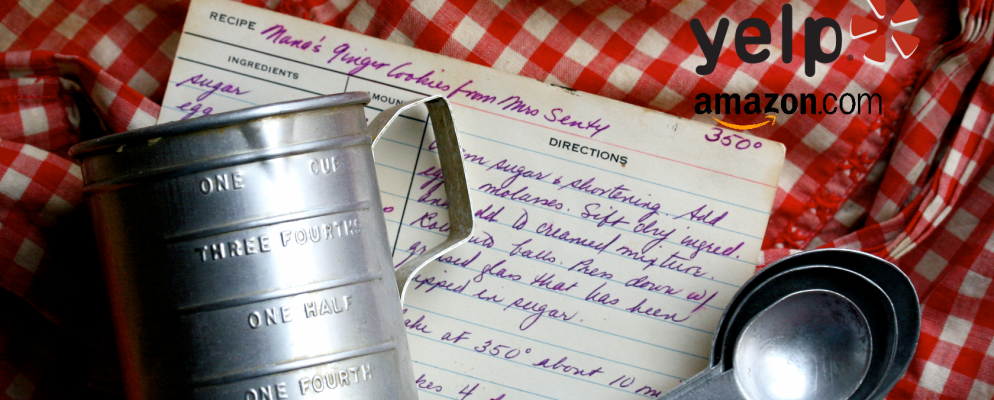 yelp
amazon.com
RECIPE Mama's Ginger Cookies from Mrs Senty
350°
INGREDIENTS
AMOUN
DIRECTIONS
sugar
egg
sugar & shortening. Add
molasses. Sift dry ingred.
add to creamed mixture.
into balls. Press down w/
glass that has been
dipped in sugar.
at 350° about 10
4
ONE CUP
THREE FOURTHS
ONE HALF
ONE FOURTH